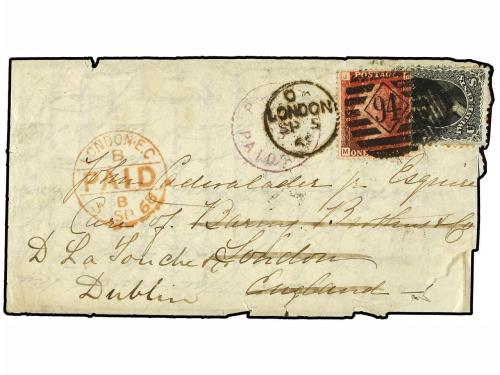 LONDON
SP 5
POSTAGE
94
M ONE
PAID
LONDON. E.C
B
PAID
B
SP
John Cadwalader jr. Esquire
Care of Baring Brothers & Co
D La Touche London
Dublin England